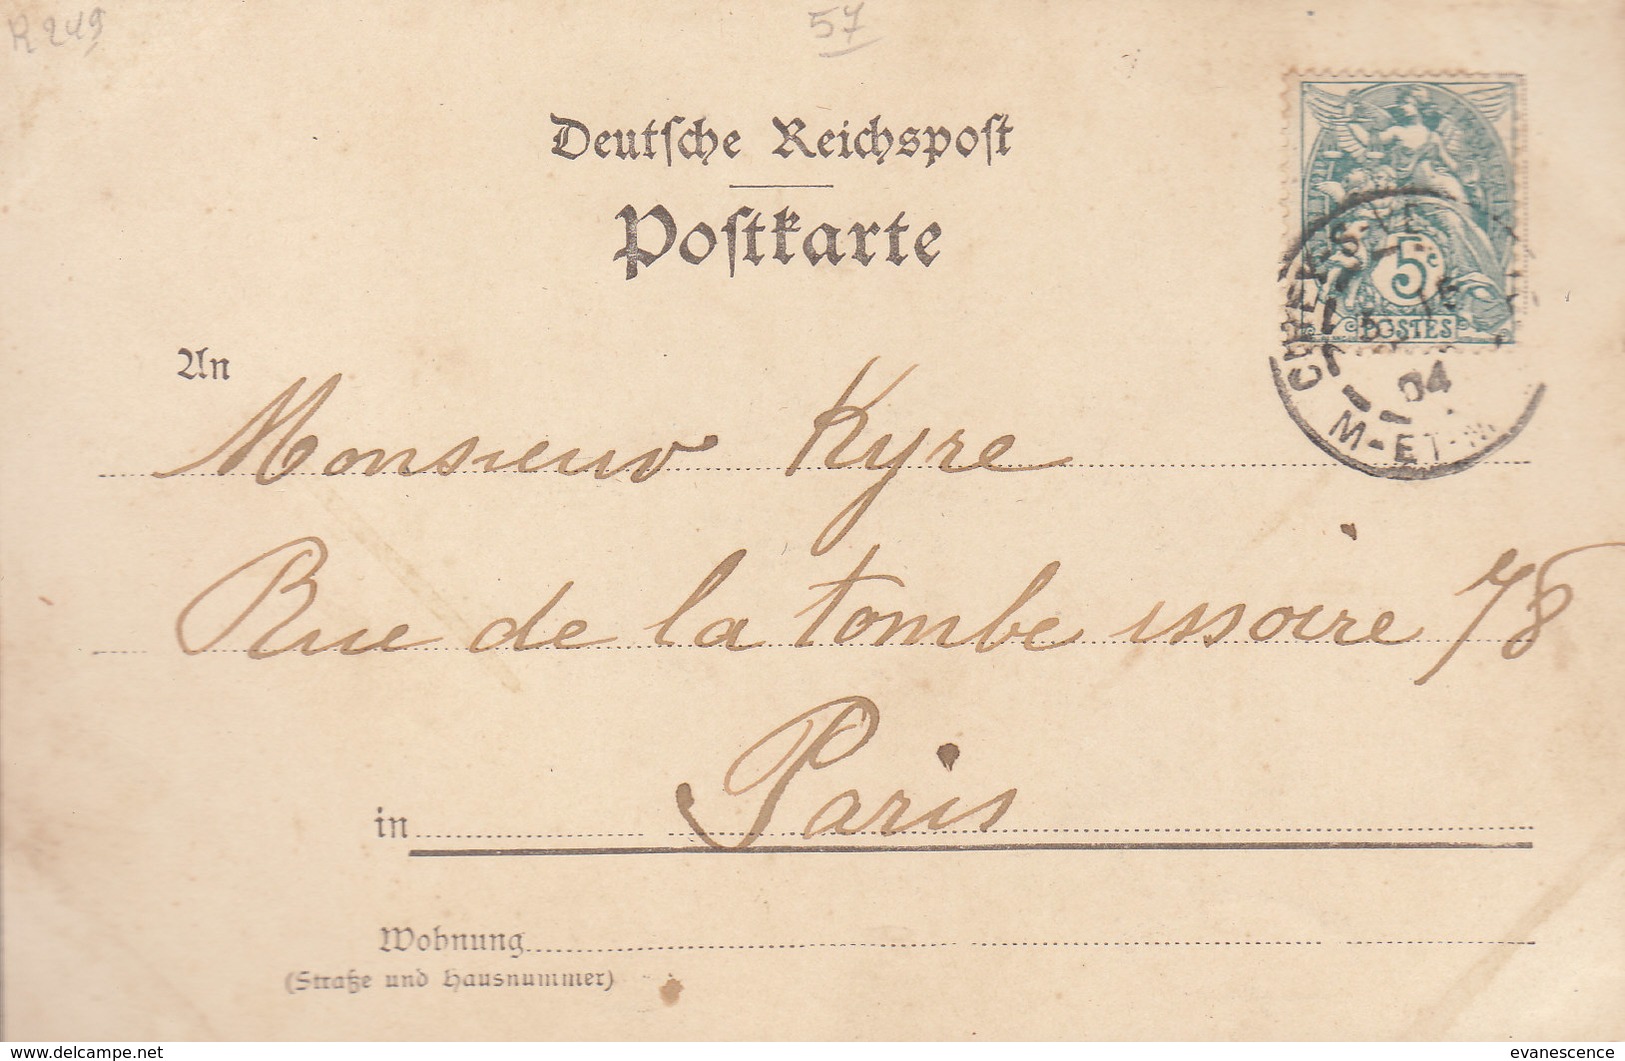 R 249
57
Deutsche Reichspost
Postkarte
5c
POSTES
04
M-ET-M
An
Monsieur Kyre
Rue de la tombe issoire 78
in Paris
Wohnung
(Straße und Hausnummer)
evanescence